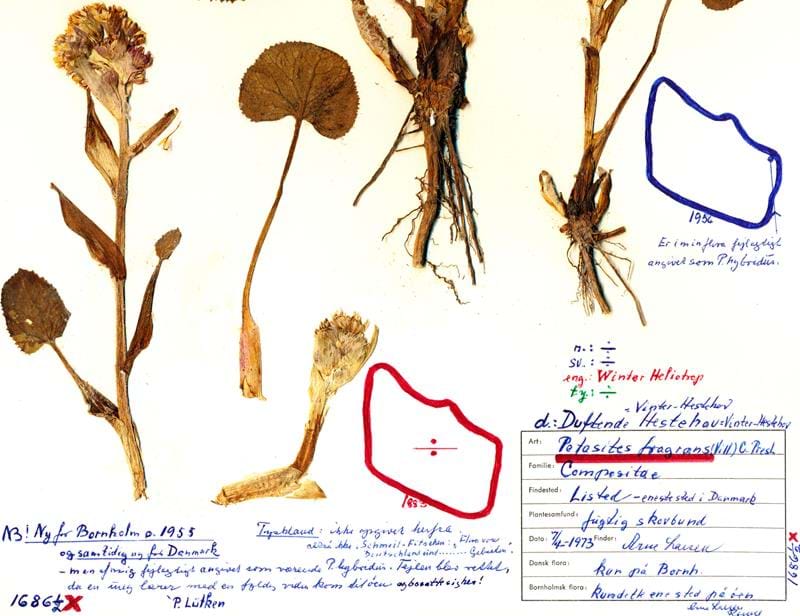 1956
Er i min flora fejlagtigt
angivet som P. hybridus.
n.: ÷
sv.: ÷
eng.: Winter Heliotrop
ty.: ÷
= Vinter-Hestehov
d.: Duftende Hestehov = Vinter-Hestehov
Art: Petasites fragrans (Vill) C. Presl.
Familie: Compositae
Findested: Listed - enestested i Danmark
Plantesamfund: fugtig skovbund
Dato: 7/4-1973 Finder: Arne Larsen
Dansk flora: kun på Bornh.
Bornholmsk flora: kun dette ene sted på øen
Arne Larsen
1686½ X
÷
NB! Ny for Bornholm o. 1955
og samtidig ny for Danmark
- men af mig fejlagtigt angivet som værende P. hybridus. Fejlen blev rettet,
da en
lærer med en
kom til øen
P. Lütken
Tyskland: i ikke opgivet herfra.
ikke i "Schmeil-Fitschen: Flora von
Deutschland und ...... Gebieten".
1686½ X